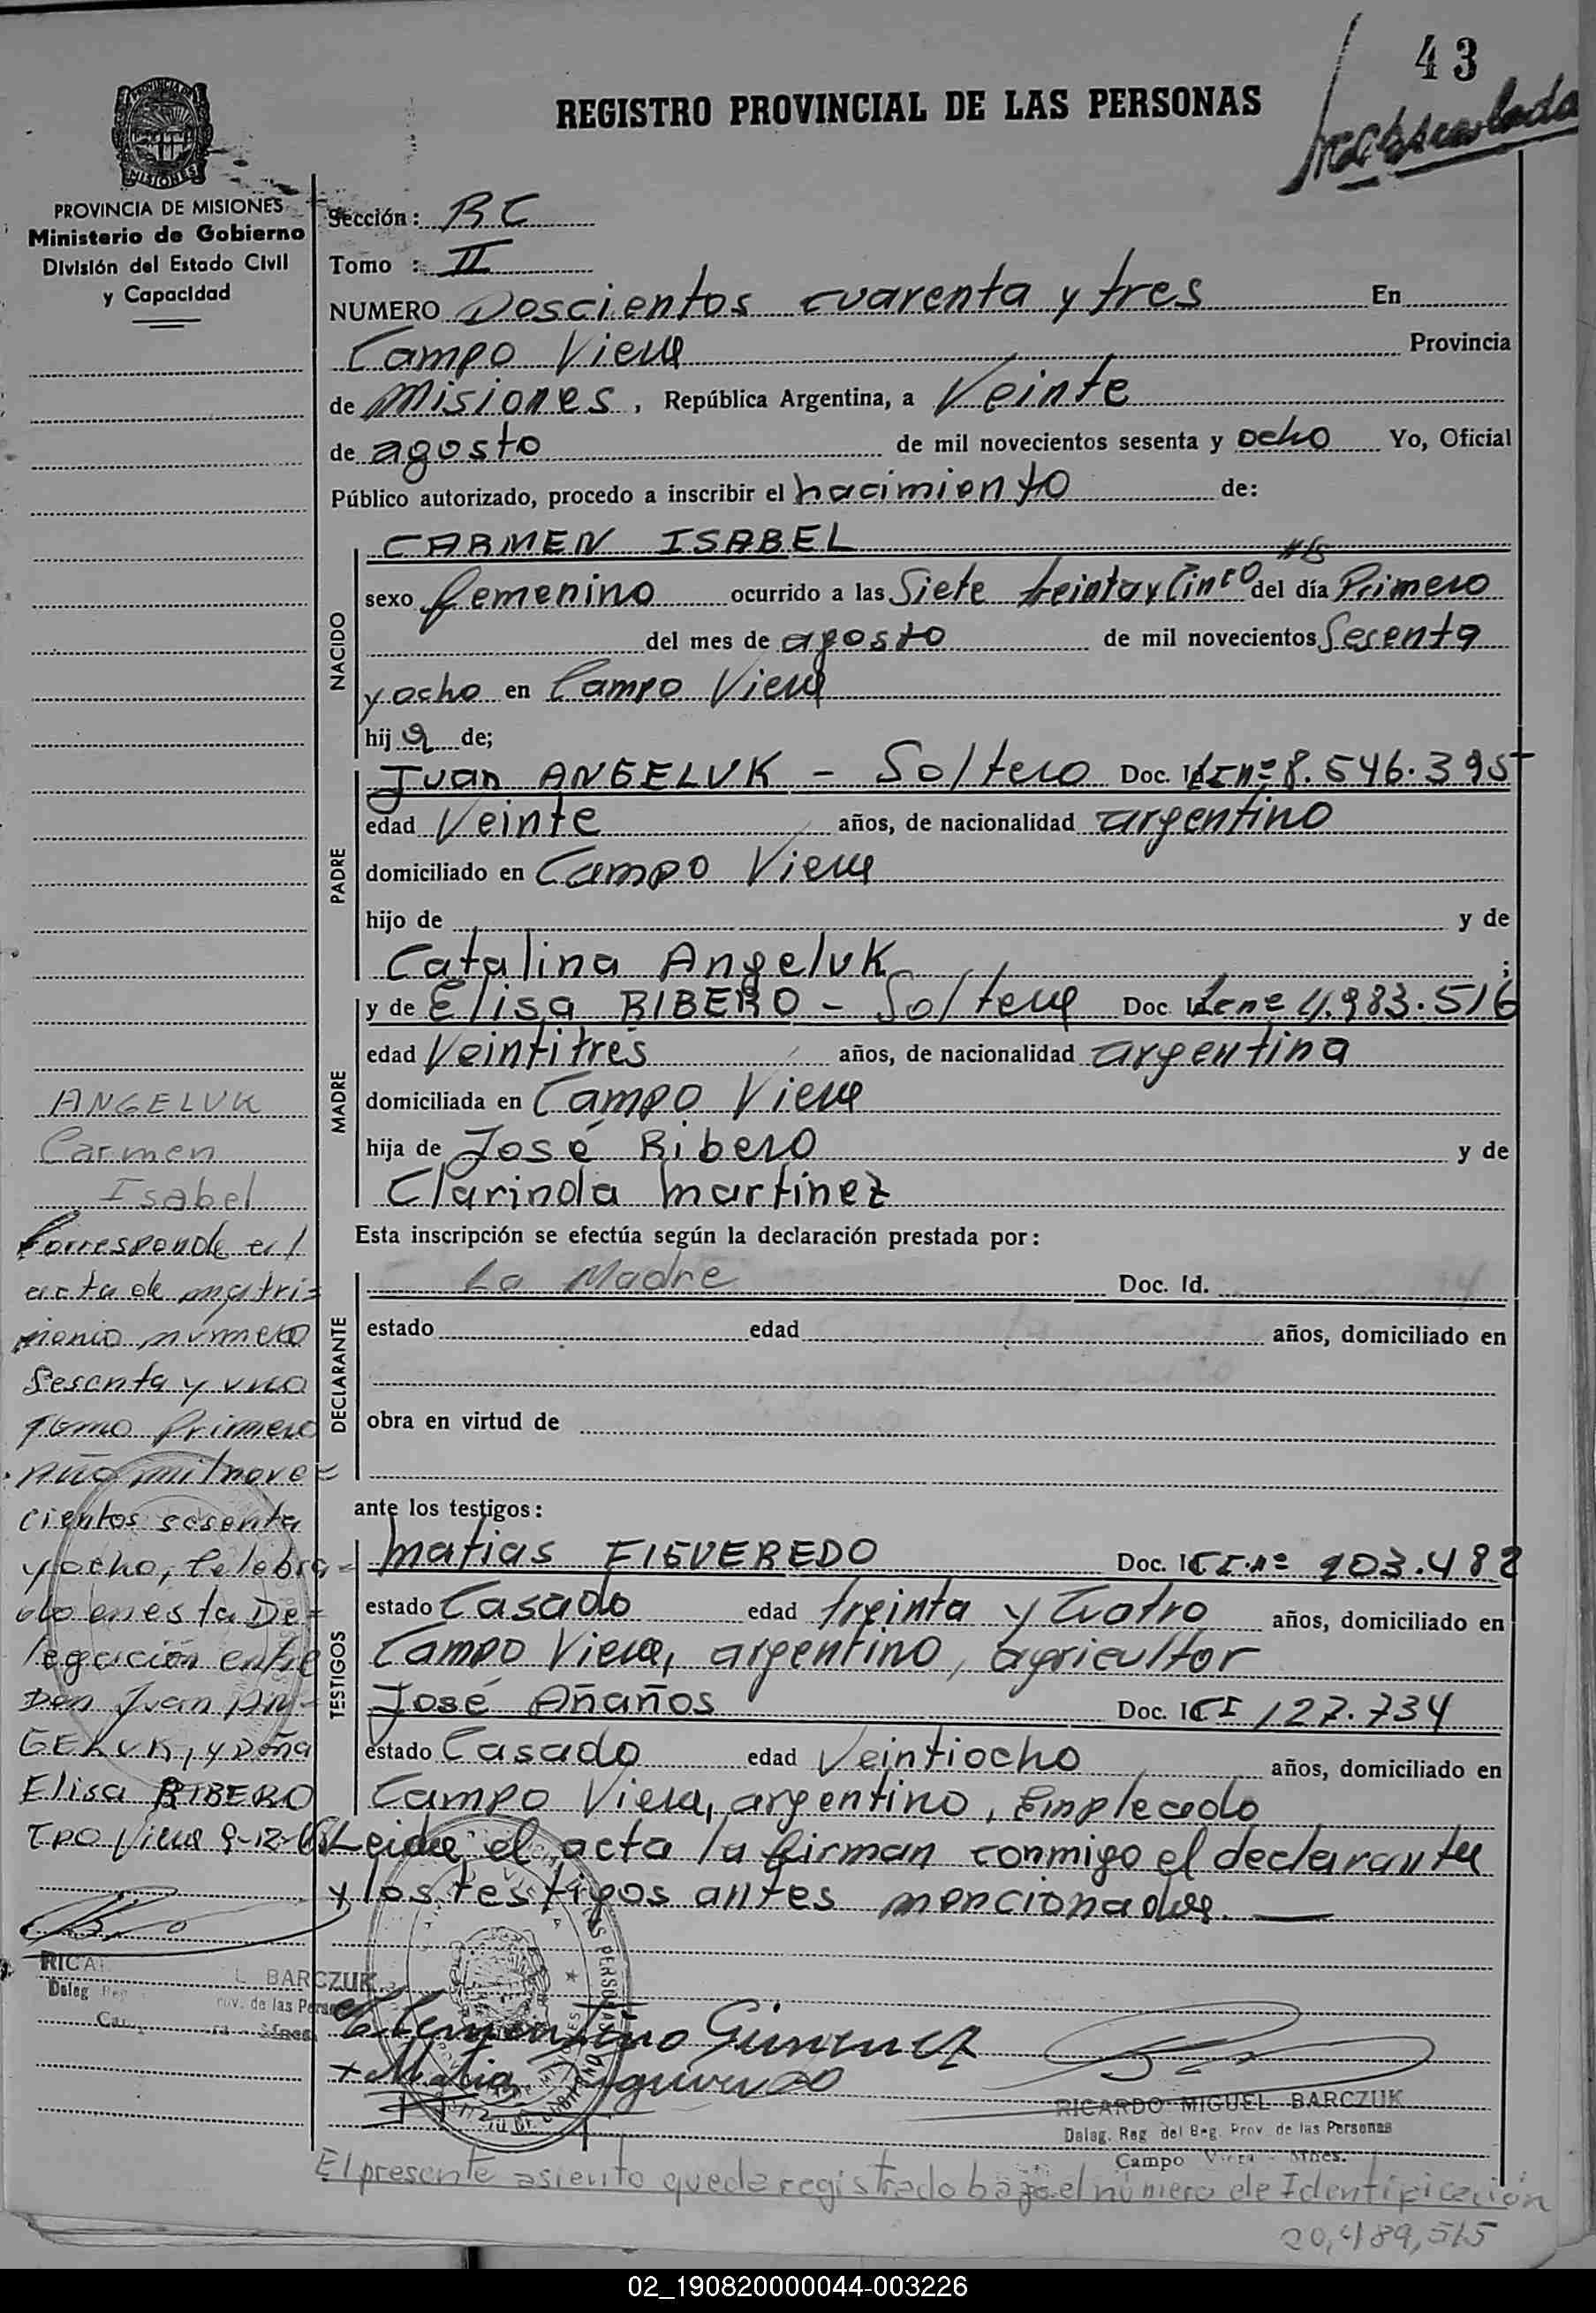 43
REGISTRO PROVINCIAL DE LAS PERSONAS
PROVINCIA DE MISIONES
Ministerio de Gobierno
División del Estado Civil
y Capacidad
Sección: RC
Tomo : II
NUMERO Doscientos cuarenta y tres En
Campo Viera Provincia
de Misiones, República Argentina, a Veinte
de agosto de mil novecientos sesenta y ocho Yo, Oficial
Público autorizado, procedo a inscribir el nacimiento de:
NACIDO
CARMEN ISABEL
sexo femenino ocurrido a las Siete treinta y Cinco hs del día Primero
del mes de agosto de mil novecientos Sesenta
y ocho en Campo Viera
hija de;
PADRE
Juan ANGELUK - Soltero Doc. LE nº 8.546.395
edad Veinte años, de nacionalidad argentino
domiciliado en Campo Viera
hijo de y de
Catalina Angeluk ;
MADRE
y de Elisa RIBERO - Soltera Doc LC nº 4.983.516
edad Veintitrés años, de nacionalidad argentina
domiciliada en Campo Viera
hija de José Ribero y de
Clarinda Martinez
Esta inscripción se efectúa según la declaración prestada por:
DECLARANTE
La Madre Doc. Id.
estado edad años, domiciliado en
obra en virtud de
ante los testigos:
TESTIGOS
Matias FIGUEREDO Doc. CI nº 103.482
estado Casado edad treinta y Cuatro años, domiciliado en
Campo Viera, argentino, agricultor
José Añaños Doc. CI 127.734
estado Casado edad Veintiocho años, domiciliado en
Campo Viera, argentino, Empleado
Leida el acta la firman conmigo el declarante
y los testigos antes mencionados.
ANGELUK
Carmen
Isabel
Corresponde al
acta de matri=
monio número
Sesenta y uno
Tomo Primero
Año mil nove=
cientos sesenta
y ocho, Celebra=
do en esta De=
legación entre
Don Juan AN=
GELUK, y Doña
Elisa RIBERO
Cpo Viera 9-12-68
L BARCZUK
Clementino Gimenez
Matia Figueredo
RICARDO MIGUEL BARCZUK
Deleg. Reg del Reg. Prov. de las Personas
Campo Viera - Mnes.
El presente asiento queda registrado bajo el número de Identificación
20,489,515
02_190820000044-003226